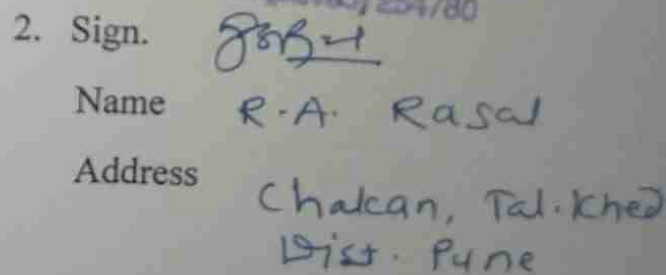 /254/80
2. Sign.
Name R.A. Rasal
Address
Chakan, Tal. Khed
Dist. Pune